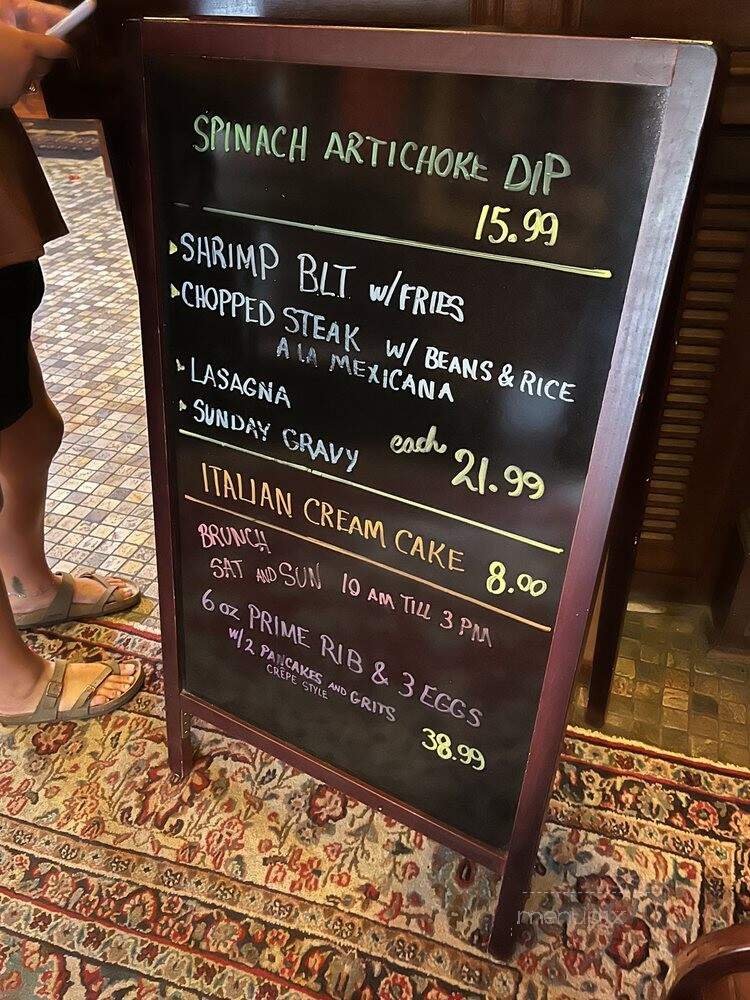 SPINACH ARTICHOKE DIP
15.99
SHRIMP BLT w/FRIES
CHOPPED STEAK w/ BEANS & RICE
A LA MEXICANA
LASAGNA
SUNDAY GRAVY each 21.99
ITALIAN CREAM CAKE 8.00
BRUNCH
SAT AND SUN 10 AM TILL 3 PM
6 oz PRIME RIB & 3 EGGS
W/2 PANCAKES AND GRITS
CRÊPE STYLE
38.99
menupix